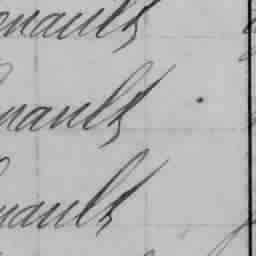 enault
nault
nault